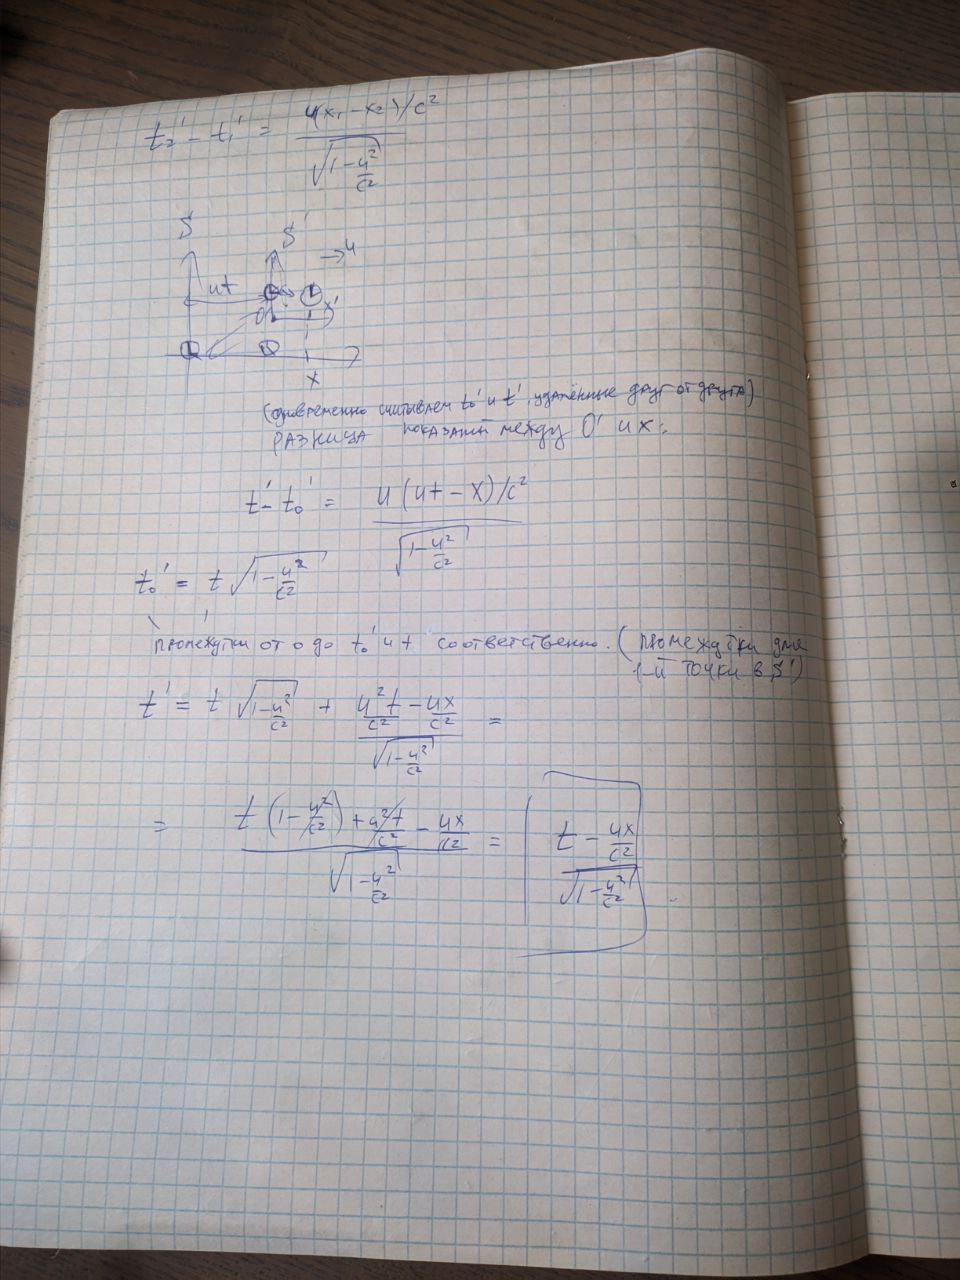 t₂' - t₁' = u(x₁ - x₂)/c² / √(1 - u²/c²)
S S' → u
ut
O' x'
x
(одновременно считываем t₀' и t', удалённые друг от друга)
разница показаний между O' и x:
t' - t₀' = u(ut - x)/c² / √(1 - u²/c²)
t₀' = t √(1 - u²/c²)
промежутки от 0 до t₀' и t соответственно. (промежутки для
1-й точки в S')
t' = t √(1 - u²/c²) + (u²t/c² - ux/c²) / √(1 - u²/c²) =
= (t(1 - u²/c²) + u²t/c² - ux/c²) / √(1 - u²/c²) = (t - ux/c²) / √(1 - u²/c²).